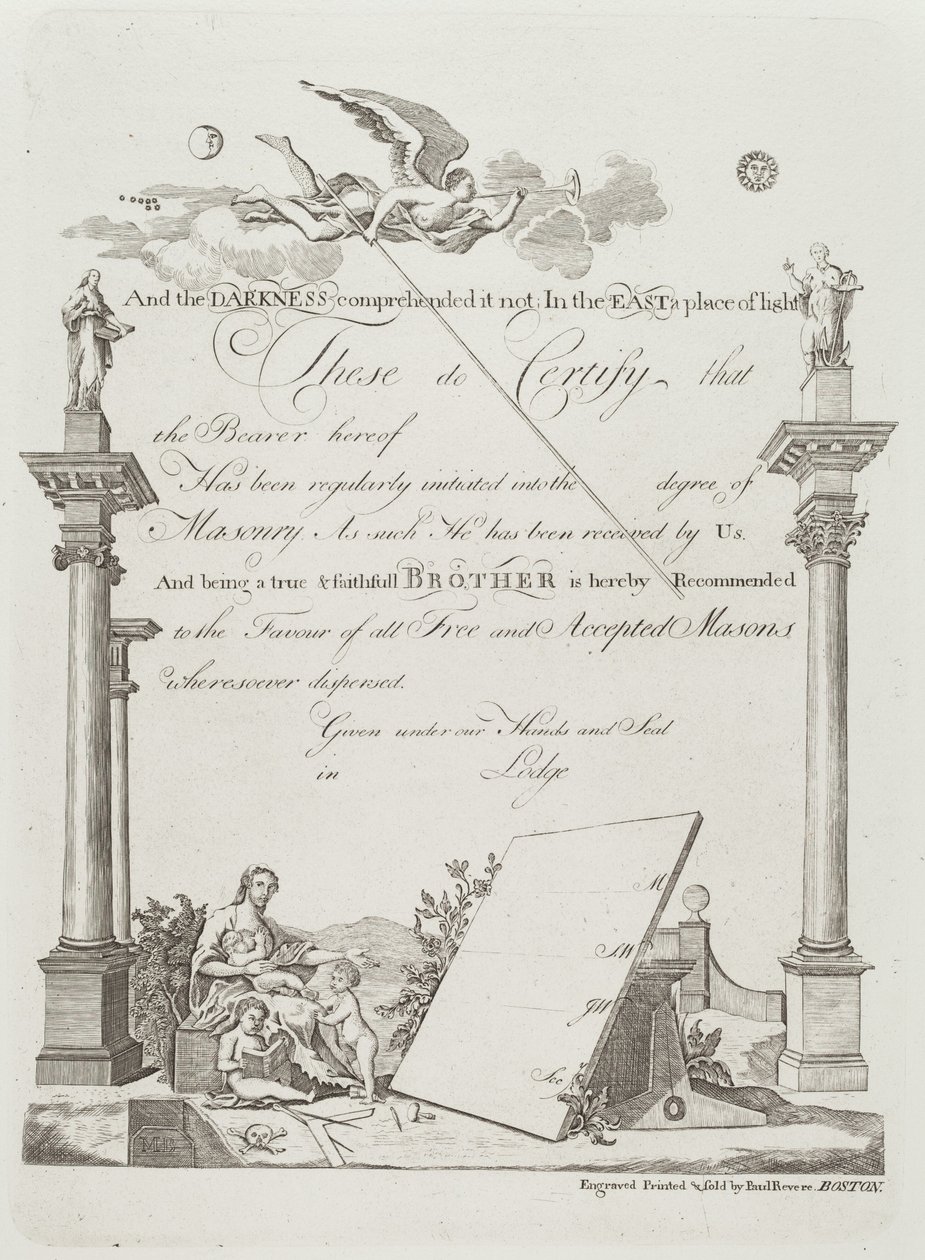 And the DARKNESS comprehended it not; In the EAST a place of light
These do Certify that
the Bearer hereof
Has been regularly initiated into the degree of
Masonry. As such He has been received by Us.
And being a true & faithfull BROTHER is hereby Recommended
to the Favour of all Free and Accepted Masons
wheresoever dispersed.
Given under our Hands and Seal
in Lodge
M
S.W
JW
Sec
MB
Engraved Printed & Sold by Paul Revere. BOSTON.